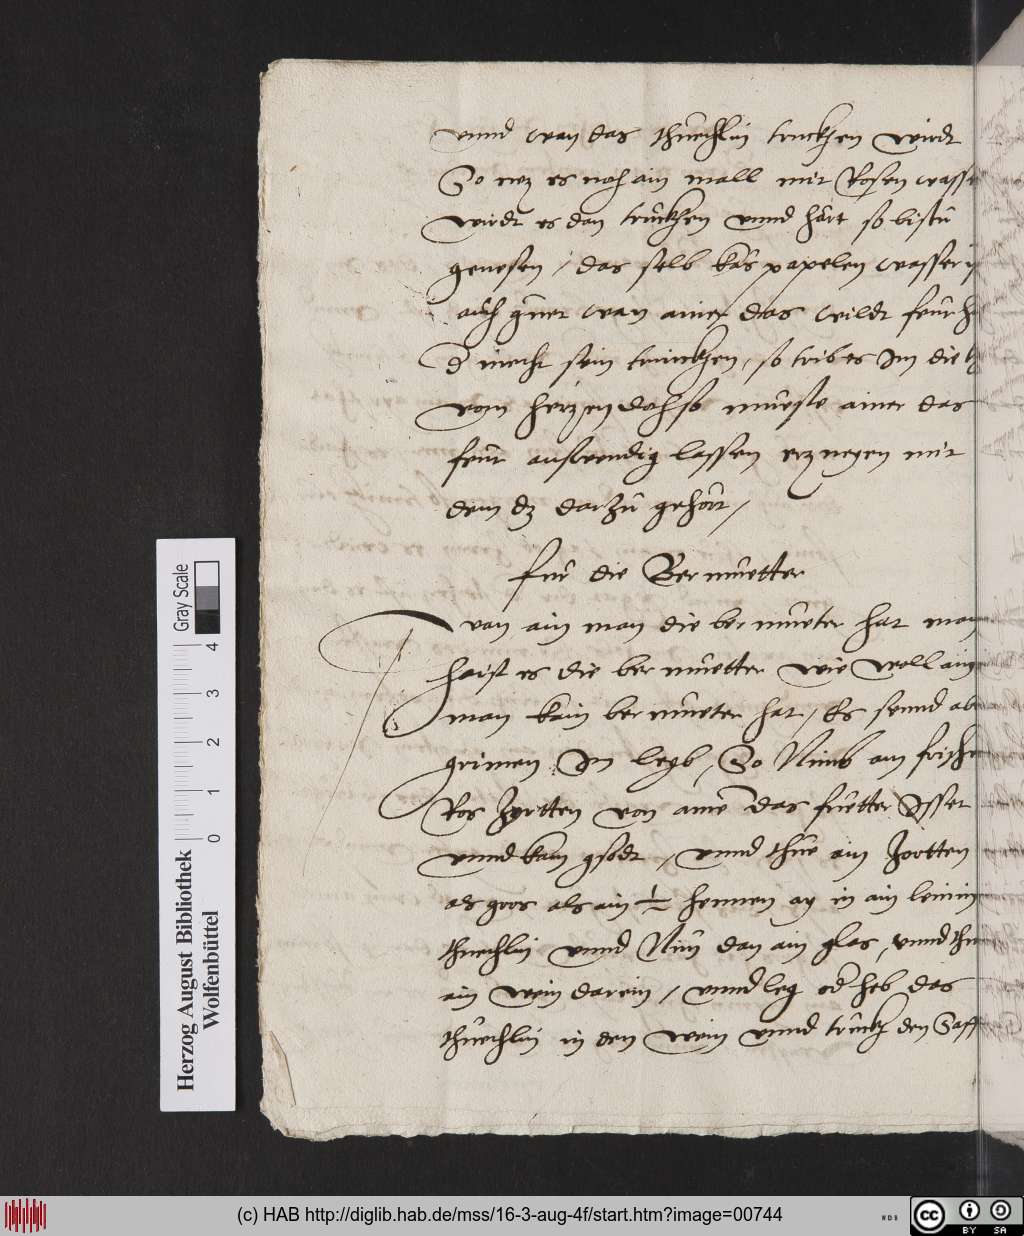 vnnd wan das thüechlin truckhen wirdt
So nez es noch ain mall mit Rosen wasser
wirdt es dan trückhen vnnd hart so bistü
genesen / das selb kas papelen wasser
auch guet wan ainer das wildt feür
d mecht sein trinckhen, so trib es Im die
vom herzen doch so mueste ainer das
feür auswendig lassen erznegen mit
dem dz darzü gehört /
für die Bermüetter
wan ain man die ber müeter hat man
haist es die ber müetter wie woll ain
man kain ber müeter hat / Es sennd
grimen Im leyb, So Nimb ain frischen
Ros Zortten von aine das füetter Isset
vnnd kain gsodt / vnnd thüe ain Zortten
als gros als ain ½ hennen ay in ain leinin
thüechlin vnnd Nim dan ain glas, vnnd thu
ain wein darein / vnnd leg od heb das
thüechlin in den wein vnnd trückh den Safft
Herzog August Bibliothek
Wolfenbüttel
Gray Scale
0 1 2 3 4
(c) HAB http://diglib.hab.de/mss/16-3-aug-4f/start.htm?image=00744
WDB
cc BY SA